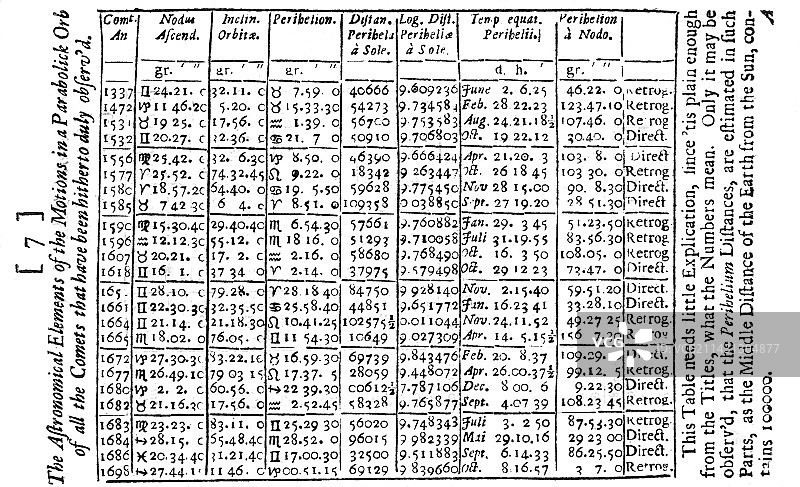 [ 7 ]
The Astronomical Elements of the Motions in a Parabolick Orb
of all the Comets that have been hitherto duly observ'd.
Comt. Nodus Inclin. Perihelion. Distan. Log. Dist. Temp equat. Perihelion
An Ascend. Orbitæ. Perihelia Periheliæ Perihelii. à Nodo.
à Sole. à Sole.
gr. ' " gr. ' " gr. ' " d. h. ' gr. ' "
1337 ♊24.21. 0 32.11. 0 ♉ 7.59. 0 40666 9.609236 June 2. 6.25 46.22. 0 Retrog.
1472 ♑11 46.20 5.20. 0 ♉ 15.33.30 54273 9.734584 Feb. 28 22.23 123.47.10 Retrog.
1531 ♉19 25. 0 17.56. 0 ♒ 1.39. 0 56700 9.753583 Aug. 24.21.18½ 107.46. 0 Retrog
1532 ♊20.27. 0 32.36. 0 ♋ 21. 7 0 50910 9.706803 Oct. 19 22.12 30.40. 0 Direct.
1556 ♍25.42. 0 32. 6.30 ♑ 8.50. 0 46390 9.666424 Apr. 21.20. 3 103. 8. 0 Direct
1577 ♈25.52. 0 74.32.45 ♌ 9.22. 0 18342 9 263447 Oct. 26 18 45 103 30. 0 Retrog
1580 ♈18.57.20 64.40. 0 ♋ 19. 5.50 59628 9.775450 Nov 28 15.00 90. 8.30 Direct.
1585 ♉ 7 42 30 6 4. 0 ♈ 8.51. 0 109358 0 038850 Sept. 27 19.20 28 51.30 Direct.
1590 ♍15.30.40 29.40.40 ♏ 6.54.30 57661 9.760882 Jan. 29. 3 45 51.23.50 Retrog
1596 ♒12.12.30 55.12. 0 ♏ 18 16. 0 51293 9.710058 Juli 31.19.55 83.56.30 Retrog.
1607 ♉20.21. 0 17. 2. 0 ♒ 2.16. 0 58680 9.768490 Oct. 16. 3 50 108.05. 0 Retrog
1618 ♊16. 1. 0 37 34 0 ♈ 2.14. 0 37975 9.579498 Oct. 29 12 23 73.47. 0 Direct.
165 ♊28.10. 0 79.28. 0 ♈ 28.18 40 84750 9 928140 Nov. 2.15.40 59.51.20 Direct.
1661 ♊22.30.30 32.35.50 ♋ 25.58.40 44851 9.651772 Jan. 16.23 41 33.28.10 Direct.
1664 ♊21.14. 0 21.18.30 ♌ 10.41.25 102575½ 0.011044 Nov. 24.11.52 49.27 25 Retrog
1665 ♏18.02. 0 76.05. 0 ♊ 11 54.30 10649 9.027309 Apr. 14. 5.15½ 156 Retrog
1672 ♑27.30.30 83.22.10 ♉ 16.59.30 69739 9.843476 Feb. 20. 8.37 109.29. Direct
1677 ♏26.49.10 79 03 15 ♌ 17.37. 5 28059 9.448072 Apr. 26.00.37½ 99.12. 5 Retrog
1680 ♑ 2. 2. 0 60.56. 0 ♐ 22.39.30 00612½ 7.787106 Dec. 8 00. 6 9.22.30 Direct.
1682 ♉21.16.30 17.56. 0 ♒ 2.52.45 58328 9.765877 Sept. 4.07 39 108.23 45 Retrog.
1683 ♍23.23. 0 83.11. 0 ♊ 25.29 30 56020 9.748343 Juli 3. 2 50 87.53.30 Retrog
1684 ♐28.15. 0 65.48.40 ♏ 28.52. 0 96015 9 982339 Mai 29.10.16 29 23 00 Direct.
1686 ♓20.34.40 31.21.40 ♊ 17.00.30 32500 9.511883 Sept. 6.14.33 86.25.50 Direct.
1698 ♐27.44.1 11 46. 0 ♑ 00.51.15 69129 9 839660 Oct. 8.16.57 3 7. 0 Retrog.
This Table needs little Explication, since 'tis plain enough
from the Titles, what the Numbers mean. Only it may be
observ'd, that the Perihelium Distances, are estimated in such
Parts, as the Middle Distance of the Earth from the Sun, con-
tains 100000. A
VCG